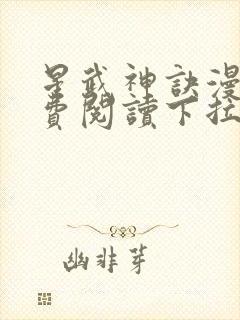 星武神訣漫
費閱讀下拉
幽非芽